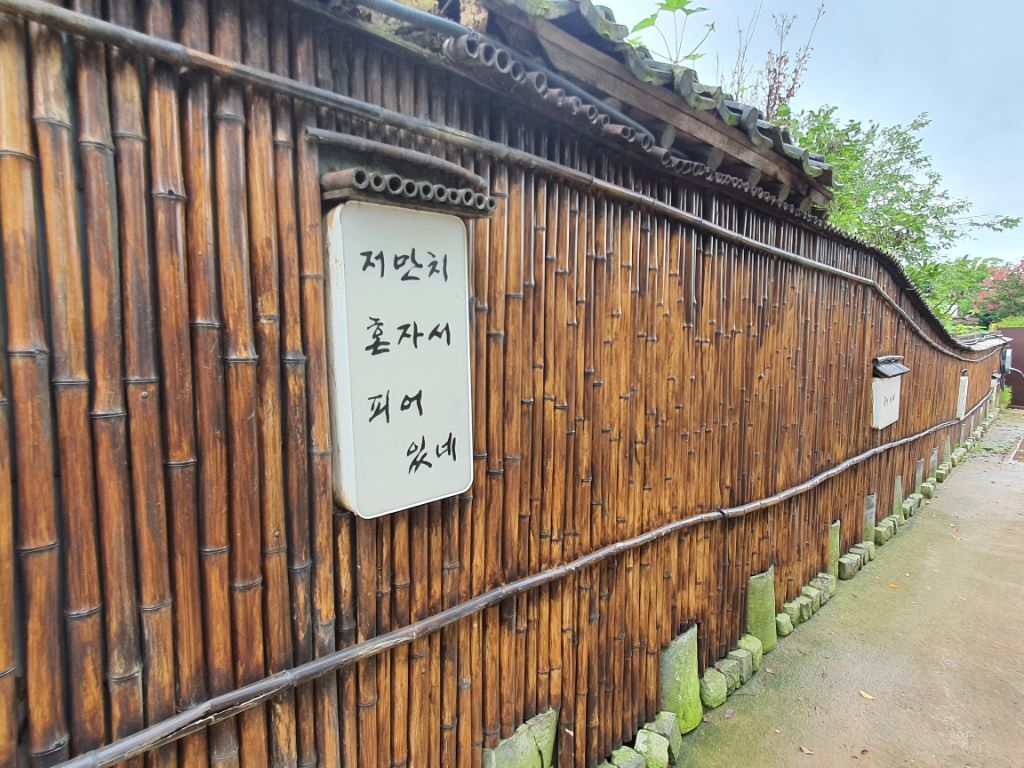 저만치
혼자서
피어
있네